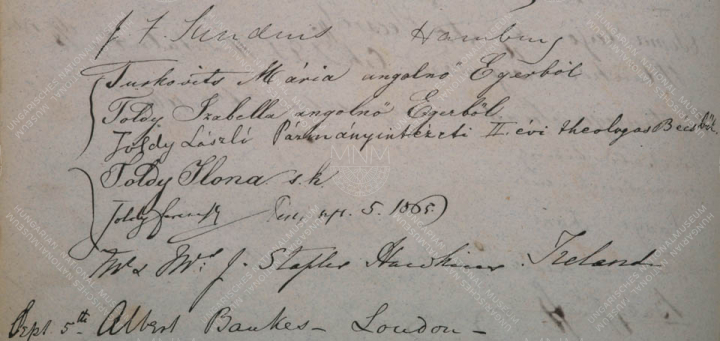 J. F. Hamburg
Turkovits Mária angolnő Egerből
Toldy Izabella angolnő Egerből.
Toldy László Pázmányintézeti II. évi theologus Bécsből.
Toldy Ilona s.k.
Toldy Ferencz Pest, sept. 5. 1865.
Mr & Mrs. J. Staples Hawkins Ireland
Sept. 5th Albert Bankes - London -
MNM
HUNGARIAN NATIONAL MUSEUM